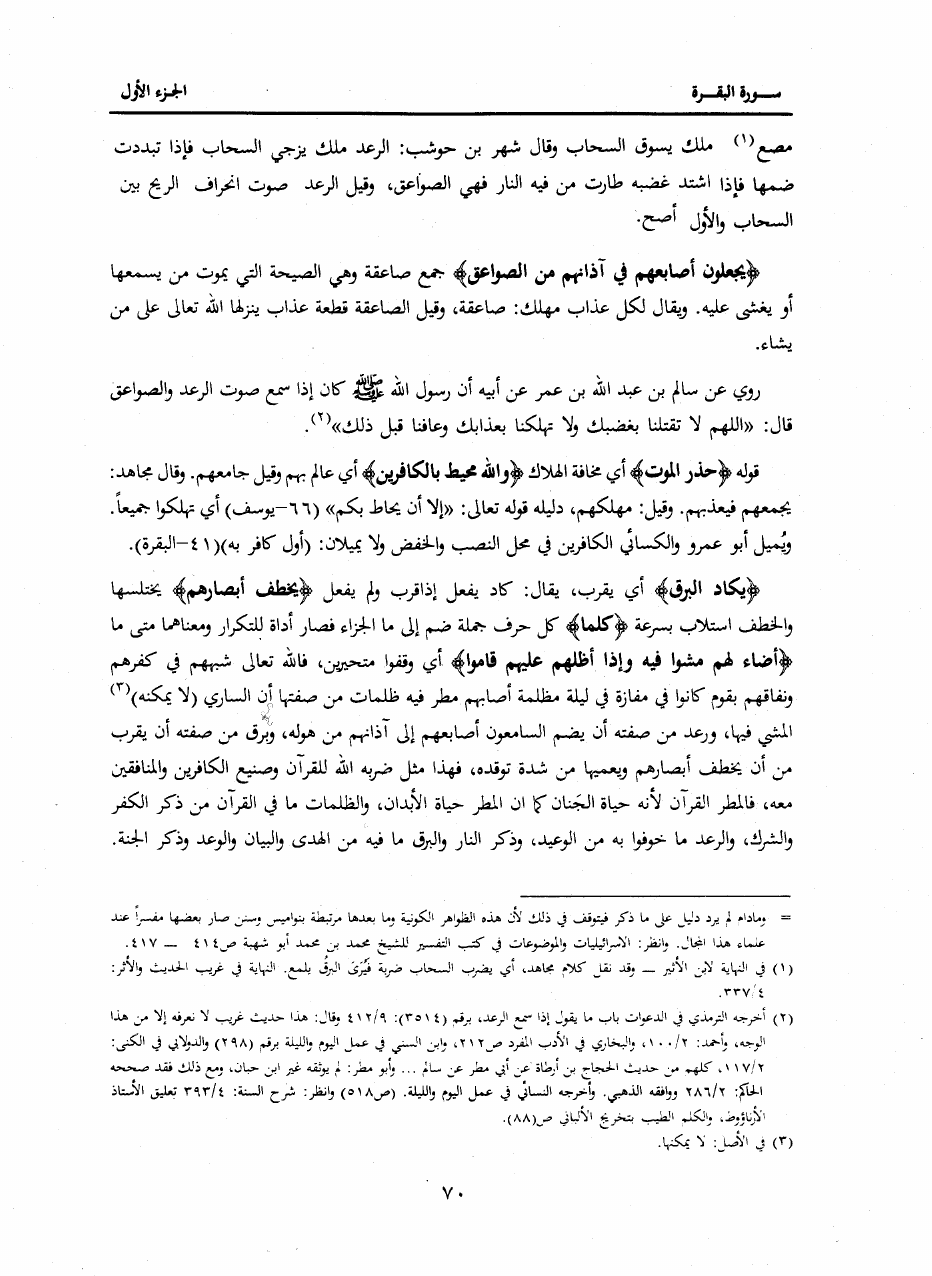 سـورة البقـرة
الجزء الأول
مصع(١) ملك يسوق السحاب وقال شهر بن حوشب: الرعد ملك يزجي السحاب فإذا تبددت
ضمها فإذا اشتد غضبه طارت من فيه النار فهي الصواعق، وقيل الرعد صوت انحراف الريح بين
السحاب والأول أصح.
﴿يجعلون أصابعهم في آذانهم من الصواعق﴾ جمع صاعقة وهي الصيحة التي يموت من يسمعها
أو يغشى عليه. ويقال لكل عذاب مهلك: صاعقة، وقيل الصاعقة قطعة عذاب ينزلها الله تعالى على من
يشاء.
روي عن سالم بن عبد الله بن عمر عن أبيه أن رسول الله ﷺ كان إذا سمع صوت الرعد والصواعق
قال: «اللهم لا تقتلنا بغضبك ولا تهلكنا بعذابك وعافنا قبل ذلك»(٢).
قوله ﴿حذر الموت﴾ أي مخافة الهلاك ﴿والله محيط بالكافرين﴾ أي عالم بهم وقيل جامعهم. وقال مجاهد:
يجمعهم فيعذبهم. وقيل: مهلكهم، دليله قوله تعالى: «إلا أن يحاط بكم» (٦٦-يوسف) أي تهلكوا جميعاً.
ويُميل أبو عمرو والكسائي الكافرين في محل النصب والخفض ولا يميلان: (أول كافر به)(٤١-البقرة).
﴿يكاد البرق﴾ أي يقرب، يقال: كاد يفعل إذاقرب ولم يفعل ﴿يخطف أبصارهم﴾ يختلسها
والخطف استلاب بسرعة ﴿كلما﴾ كل حرف جملة ضم إلى ما الجزاء فصار أداة للتكرار ومعناهما متى ما
﴿أضاء لهم مشوا فيه وإذا أظلهم عليهم قاموا﴾ أي وقفوا متحيرين، فالله تعالى شبههم في كفرهم
ونفاقهم بقوم كانوا في مفازة في ليلة مظلمة أصابهم مطر فيه ظلمات من صفتها أن الساري (لا يمكنه)(٣)
المشي فيها، ورعد من صفته أن يضم السامعون أصابعهم إلى آذانهم من هوله، وبرق من صفته أن يقرب
من أن يخطف أبصارهم ويعميها من شدة توقده، فهذا مثل ضربه الله للقرآن وصنيع الكافرين والمنافقين
معه، فالمطر القرآن لأنه حياة الجَنان كما ان المطر حياة الأبدان، والظلمات ما في القرآن من ذكر الكفر
والشرك، والرعد ما خوفوا به من الوعيد، وذكر النار والبرق ما فيه من الهدى والبيان والوعد وذكر الجنة.
= ومادام لم يرد دليل على ما ذكر فيتوقف في ذلك لأن هذه الظواهر الكونية وما بعدها مرتبطة بنواميس وسنن صار بعضها مفسراً عند
علماء هذا المجال. وانظر: الاسرائيليات والموضوعات في كتب التفسير للشيخ محمد بن محمد أبو شهبة ص٤١٤ — ٤١٧.
(١) في النهاية لابن الأثير — وقد نقل كلام مجاهد، أي يضرب السحاب ضربة فَيُرَى البرقُ يلمع. النهاية في غريب الحديث والأثر:
٣٣٧/٤.
(٢) أخرجه الترمذي في الدعوات باب ما يقول إذا سمع الرعد، برقم (٣٥١٤): ٤١٢/٩ وقال: هذا حديث غريب لا نعرفه إلا من هذا
الوجه، وأحمد: ١٠٠/٢، والبخاري في الأدب المفرد ص٢١٢، وابن السني في عمل اليوم والليلة برقم (٢٩٨) والدولابي في الكنى:
١١٧/٢، كلهم من حديث الحجاج بن أرطاة عن أبي مطر عن سالم ... وأبو مطر: لم يوثقه غير ابن حبان، ومع ذلك فقد صححه
الحاكم: ٢٨٦/٢ ووافقه الذهبي. وأخرجه النسائي في عمل اليوم والليلة. (ص٥١٨) وانظر: شرح السنة: ٣٩٣/٤ تعليق الأستاذ
الأرناؤوط، والكلم الطيب بتخريج الألباني ص(٨٨).
(٣) في الأصل: لا يمكنها.
٧٠